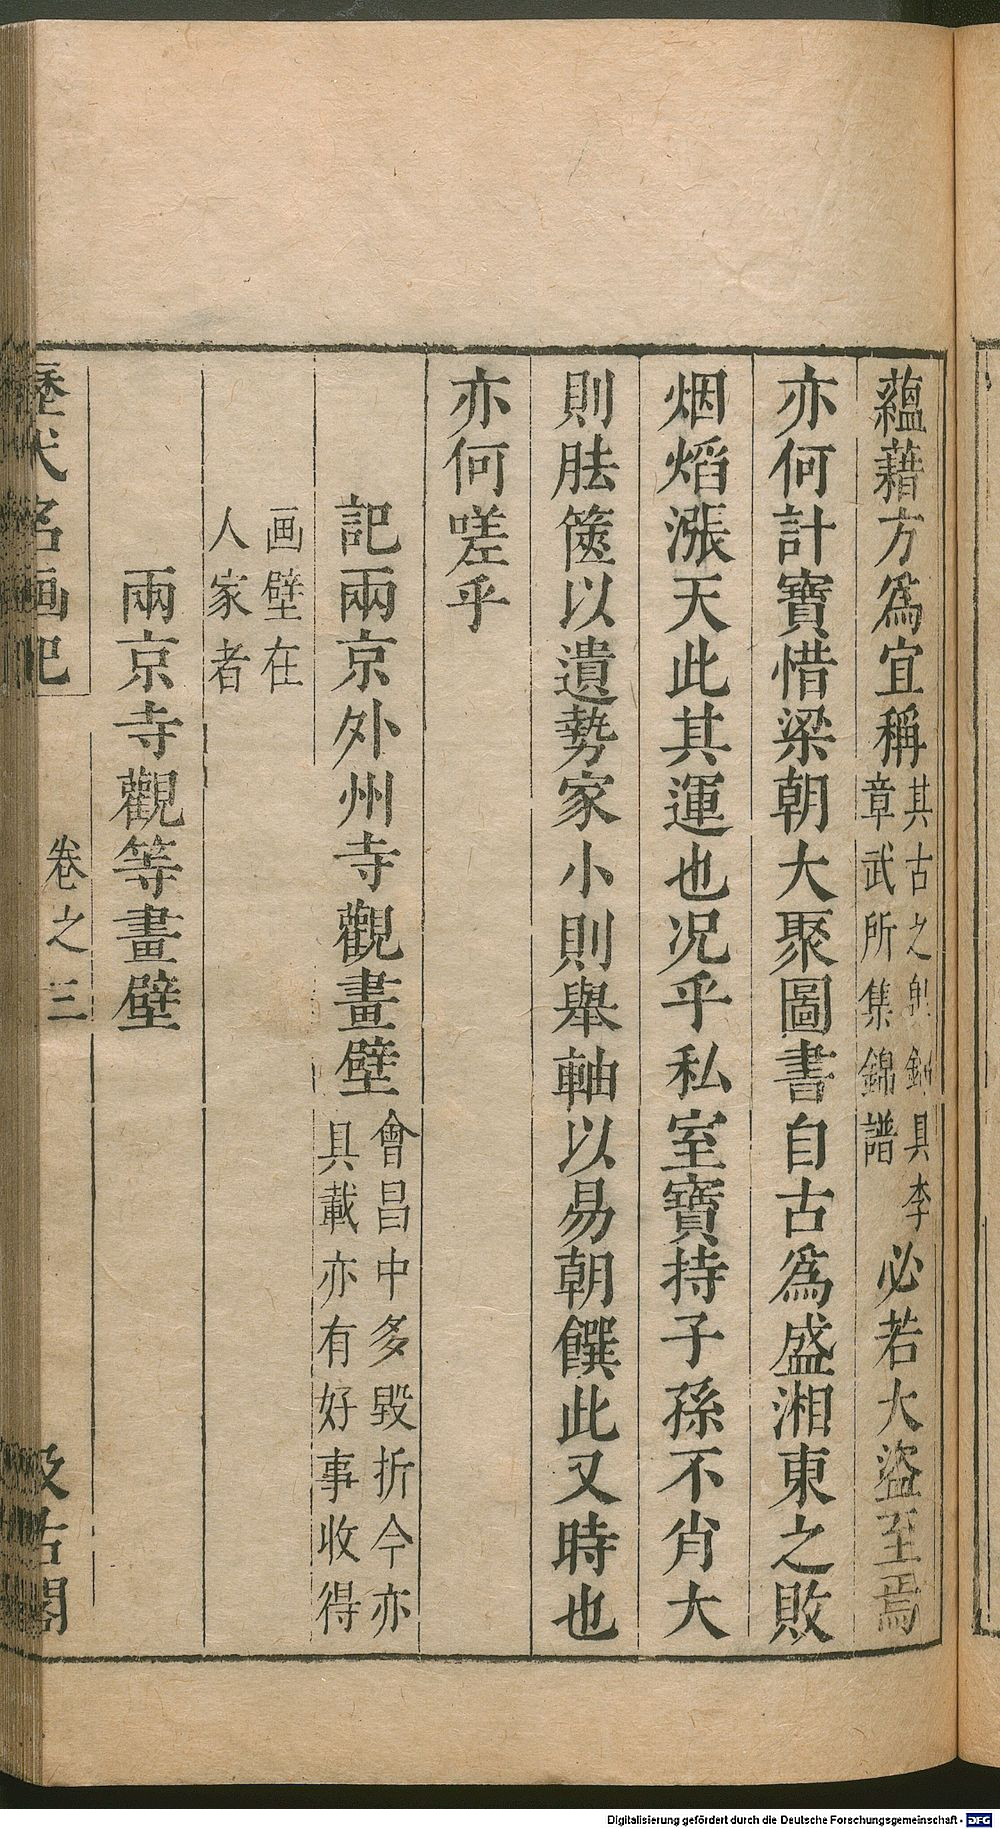 蘊藉方爲宜稱其古之 具李章武所集錦譜必若大盜至焉
亦何計寶惜梁朝大聚圖書自古爲盛湘東之敗
烟熖漲天此其運也况乎私室寶持子孫不肖大
則胠篋以遺勢家小則舉軸以易朝饌此又時也
亦何嗟乎
記兩京外州寺觀畫壁會昌中多毀折今亦具載亦有好事收得
画壁在人家者
兩京寺觀等畫壁
歷代名画記 卷之三 汲古閣
Digitalisierung gefördert durch die Deutsche Forschungsgemeinschaft - DFG